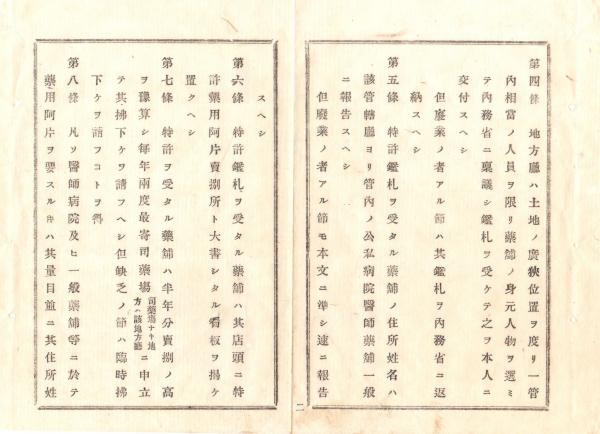 第四條 地方廳ハ土地ノ廣狹位置ヲ度リ一管
内相當ノ人員ヲ限リ藥舖ノ身元人物ヲ選ミ
テ內務省ニ稟議シ鑑札ヲ受ケテ之ヲ本人ニ
交付スヘシ
但廢業ノ者アル節ハ其鑑札ヲ內務省ニ返
納スヘシ
第五條 特許鑑札ヲ受タル藥舖ノ住所姓名ハ
該管轄廳ヨリ管內ノ公私病院醫師藥舖一般
ニ報告スヘシ
但廢業ノ者アル節モ本文ニ準シ速ニ報告
二
スヘシ
第六條 特許鑑札ヲ受タル藥舖ハ其店頭ニ特
許藥用阿片賣捌所ト大書シタル看板ヲ揭ケ
置クヘシ
第七條 特許ヲ受タル藥舖ハ半年分賣捌ノ高
ヲ豫算シ每年兩度最寄司藥場司藥場ナキ地方ハ該地方廳ニ申立
テ其拂下ケヲ請フヘシ但缺乏ノ節ハ臨時拂
下ケヲ請フコトヲ得
第八條 凡ソ醫師病院及ヒ一般藥舖等ニ於テ
藥用阿片ヲ要スルキハ其量目並ニ其住所姓